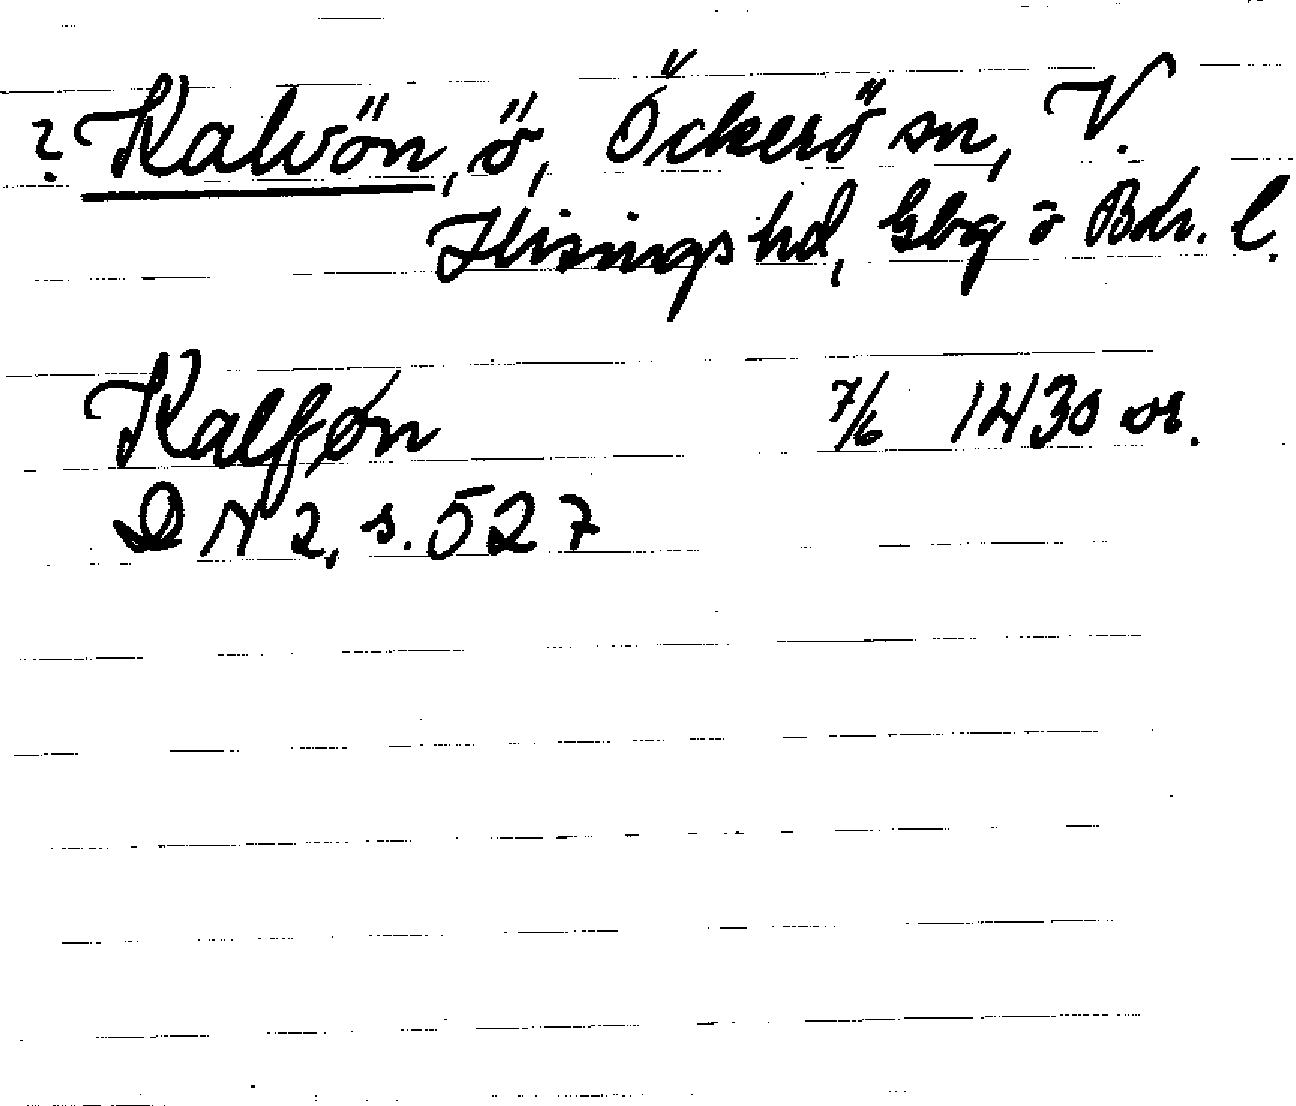 ? Kalvön, ö, Öckerö sn, V.
Hisings hd, Gbg o Boh. l.
Kalføn 7/6 1430 or.
DN 2, s. 527